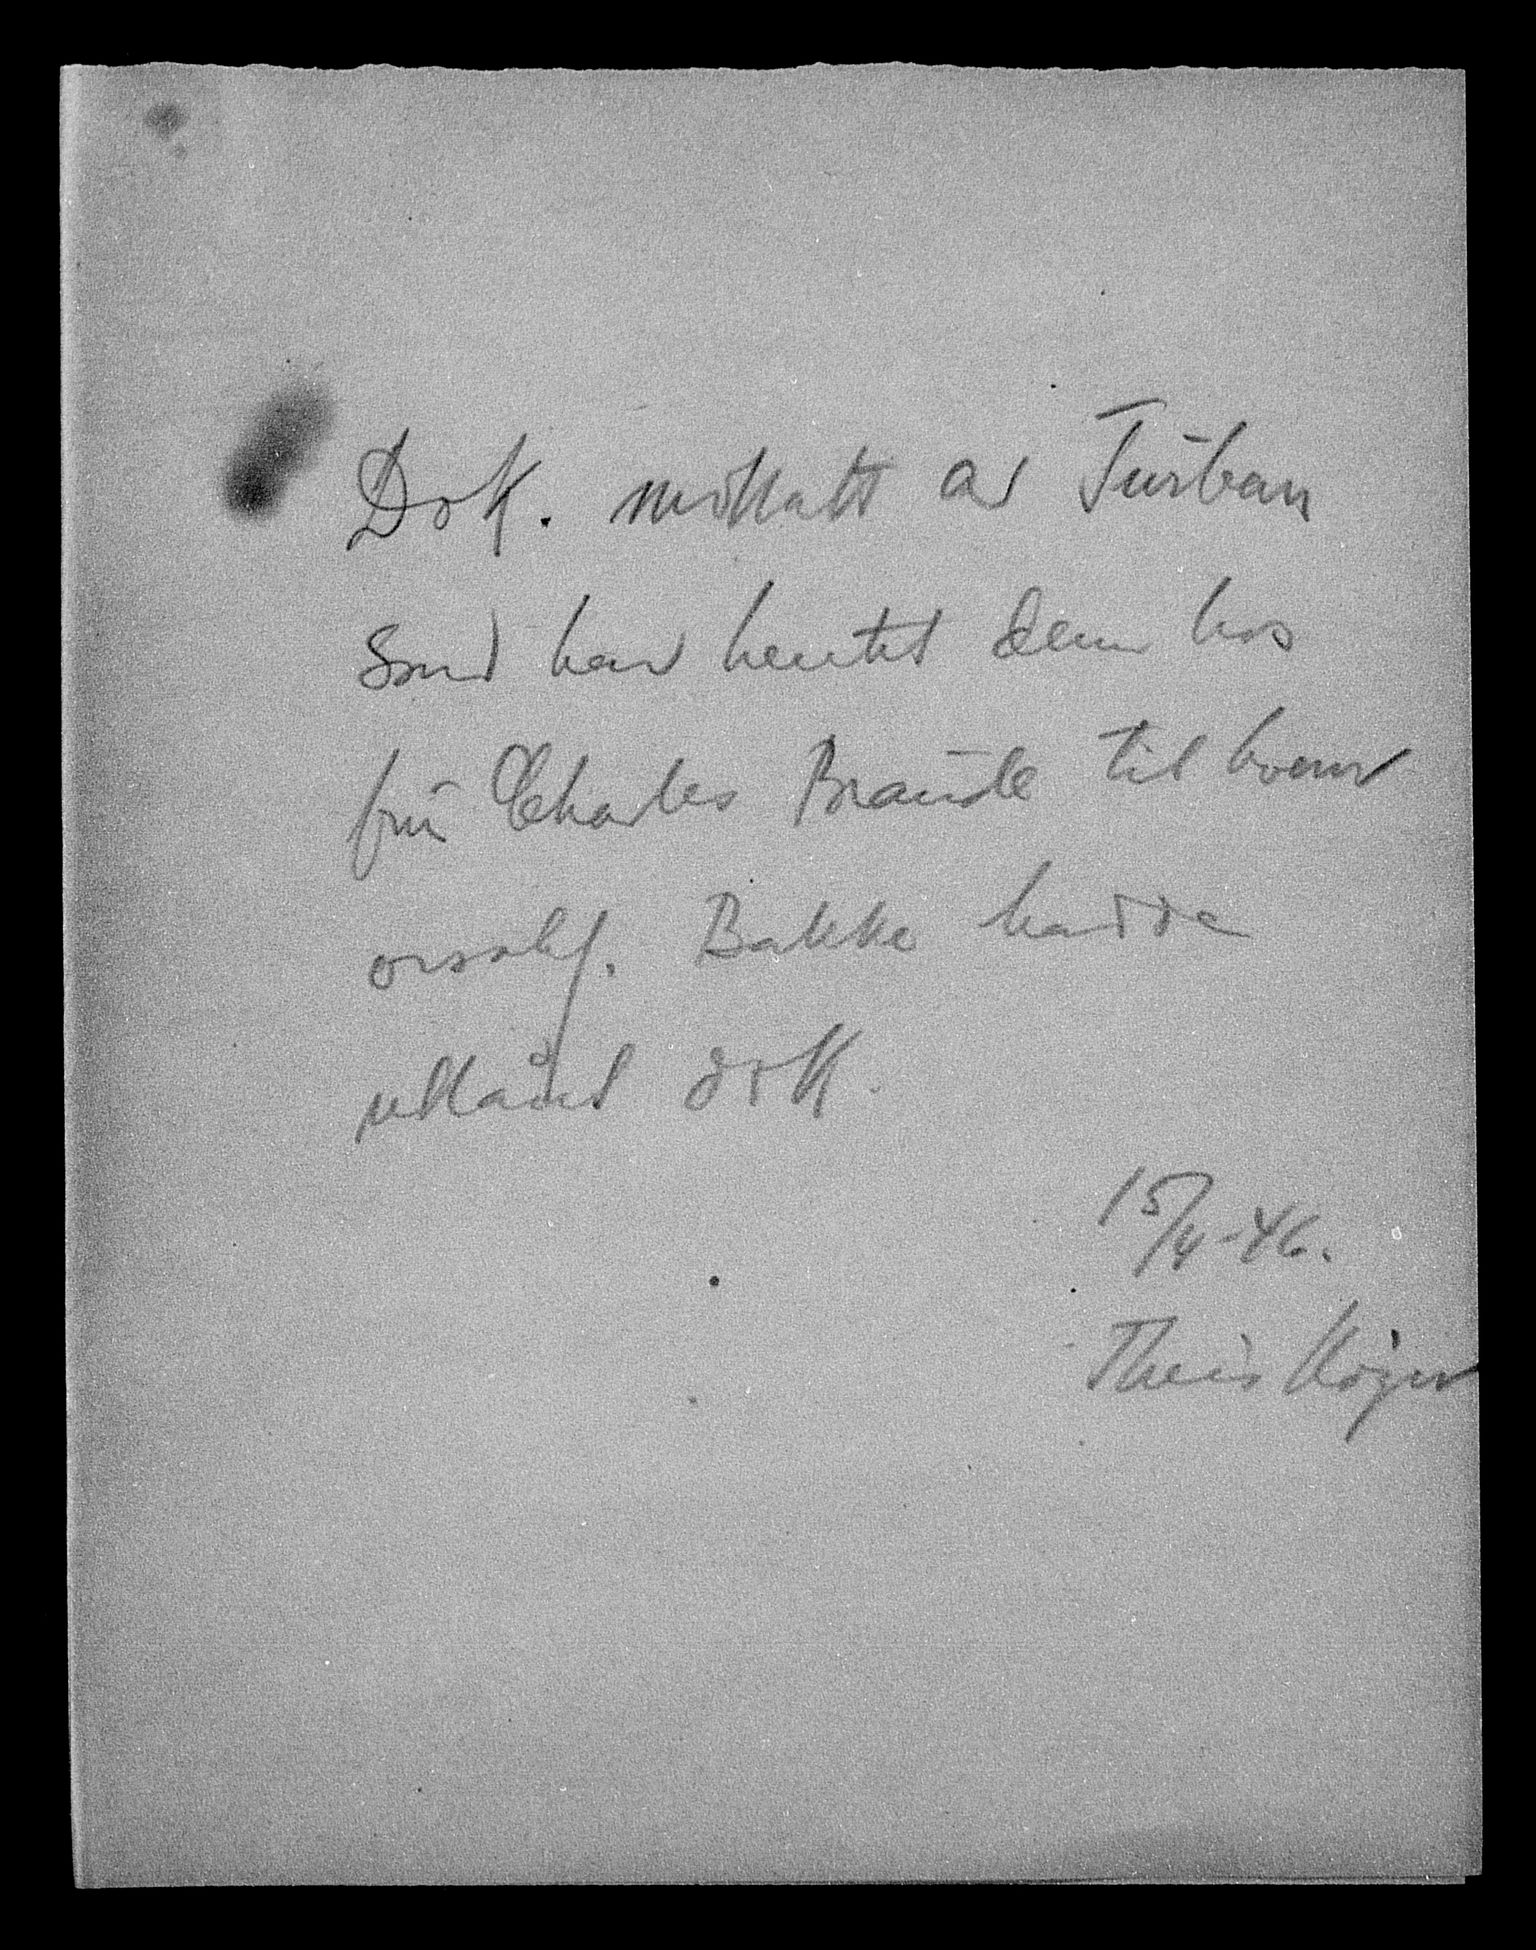 Dok. mottatt av Turban
som har hentet dem hos
fru Charles Braude til hvem
Bakke hadde
utlånt dok.
15/4-46.
Theis